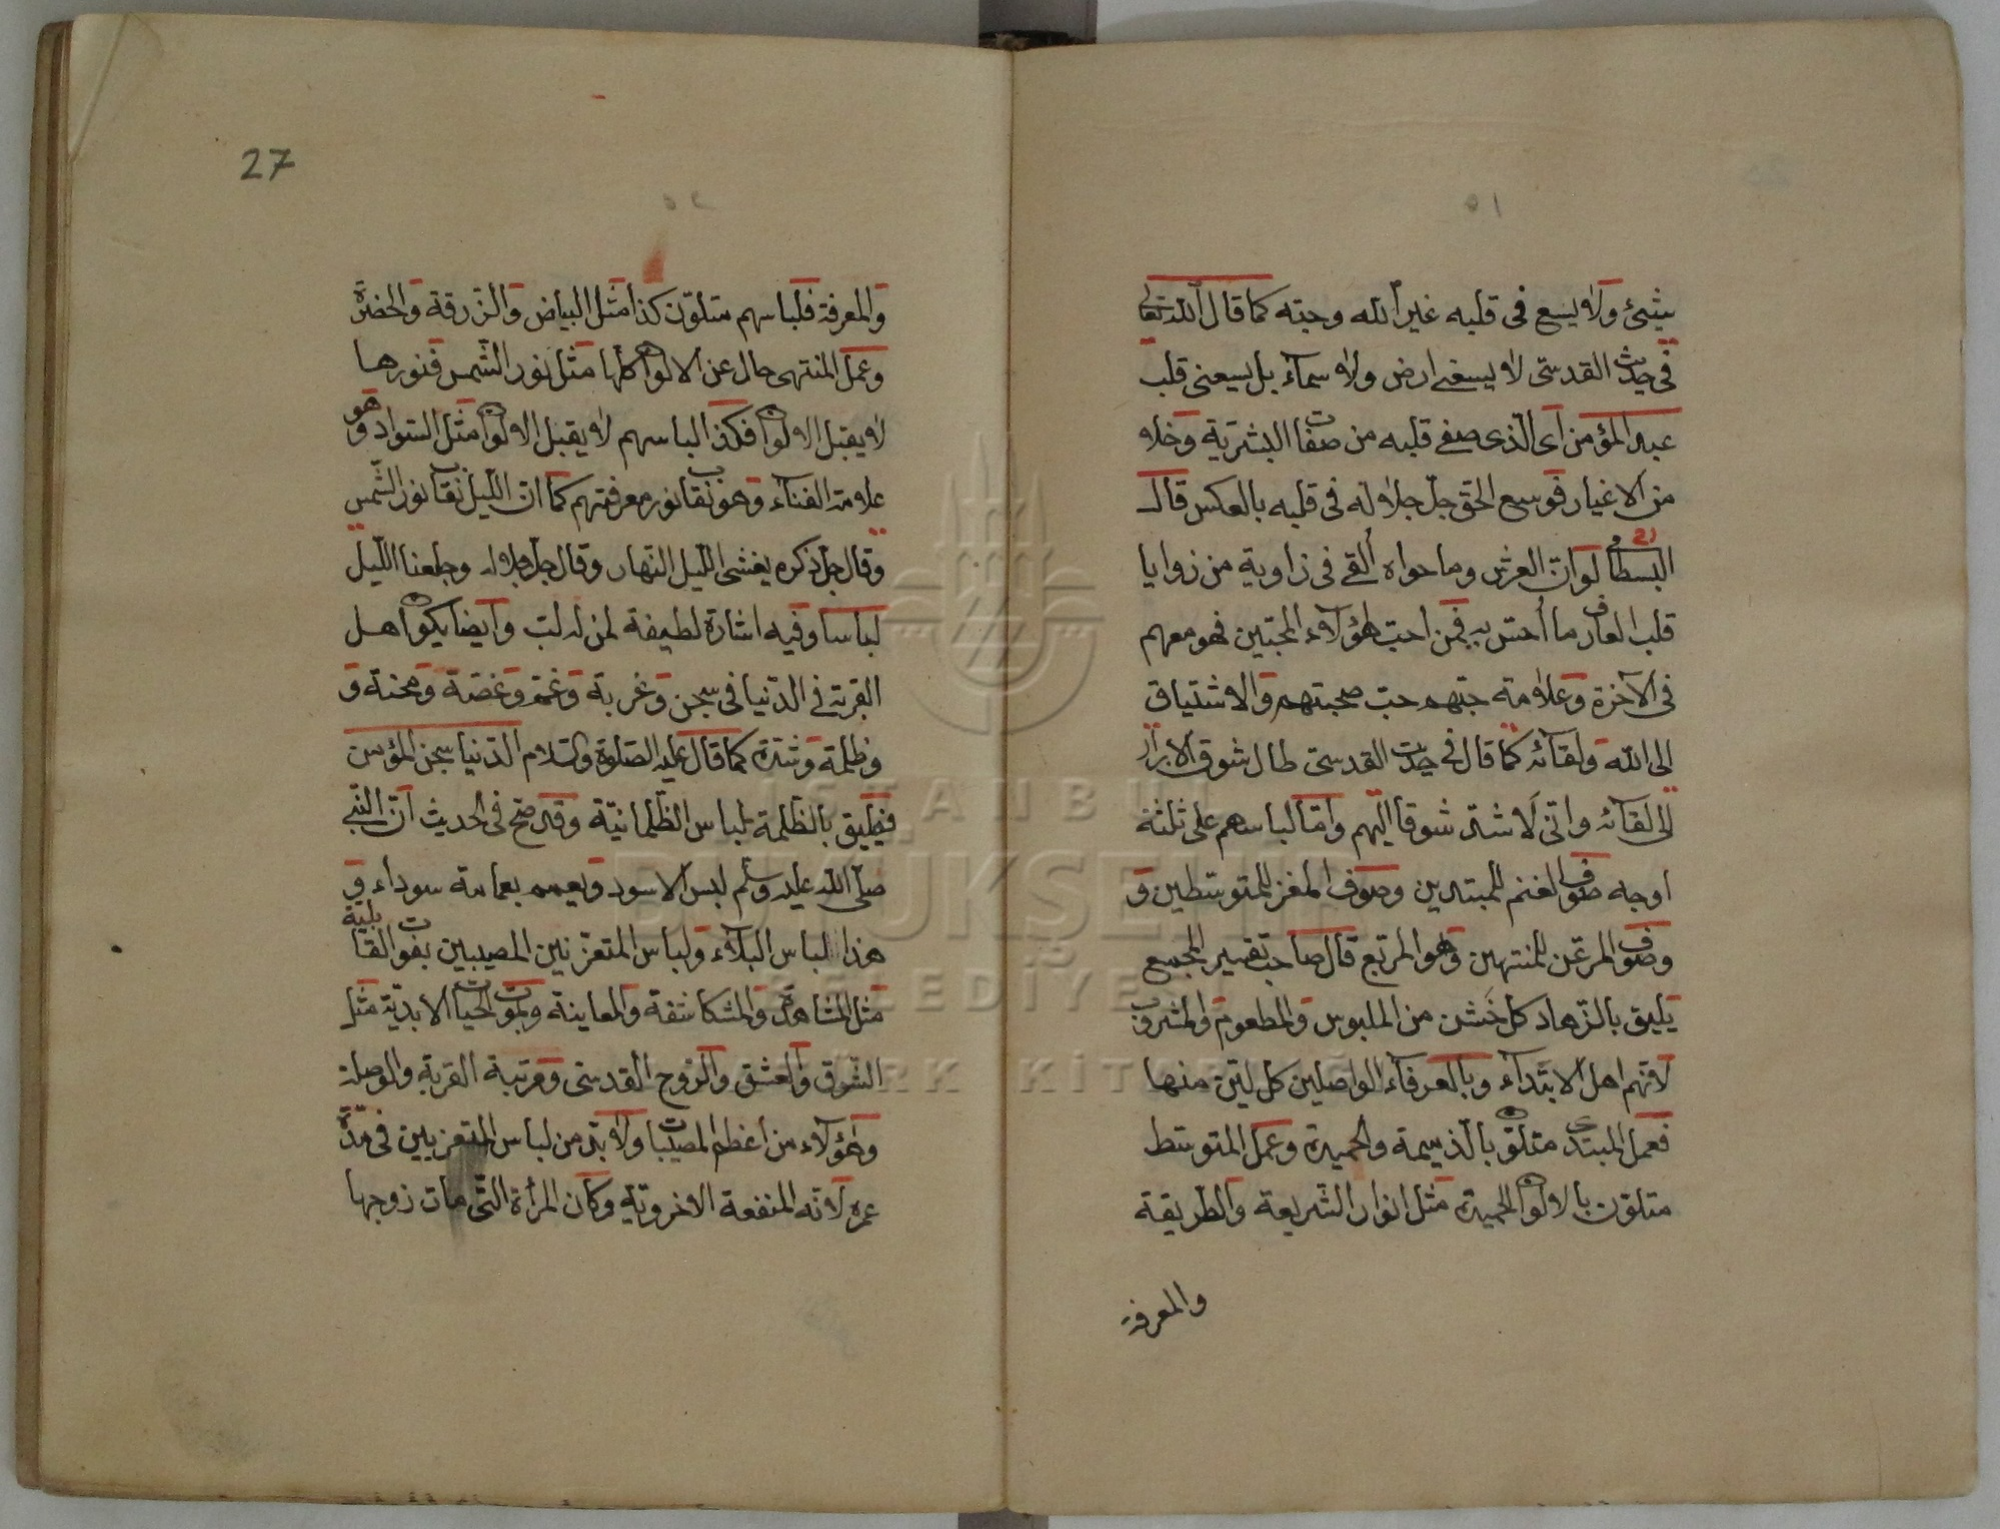 ٥١
بشئ ولا يسع فى قلبه غير الله وحبّه كما قال الله تعالى
فى حديث القدسىّ لا يسعنى ارض ولا سمآء بل يسعنى قلب
عبد المؤمن اى الّذى صفى قلبه من صفات البشريّة وخلا
من الاغيار فوسع الحقّ جلّ جلاله فى قلبه بالعكس قال
البسطامى لو انّ العرش وما حواه ألقى فى زاوية من زوايا
قلب العارف ما أحسّ به فمن احبّ هؤلاء المحبّين فهو معهم
فى الآخرة وعلامة حبّهم حبّ صحبتهم والاشتياق
الى الله ولقائه كما قال فى حديث القدسىّ طال شوق الابرار
الى لقائه وانّى لاشدّ شوقا اليهم وامّا لباسهم على ثلثة
اوجه صوف الغنم للمبتدين وصوف المغز للمتوسّطين و
وصوف المرعزّ للمنتهين وهو المربّع قال صاحب تفسير المجمع
يليق بالزّهاد كلّ خشن من الملبوس والمطعوم والمشروب
لانّهم اهل الابتدآء وبالعرفآء الواصلين كلّ ليّن منها
فعمل المبتدى متلوّن بالذّميمة والحميدة وعمل المتوسّط
متلوّن بالالوان الحميدة مثل انوار الشّريعة والطّريقة
والمعرفة
27
٥٢
والمعرفة فلباسهم متلوّن كذا مثل البياض والزّرقة والخضرة
وعمل المنتهى خال عن الالوان كلّها مثل نور الشّمس فنورها
لا يقبل الالوان فكذا لباسهم لا يقبل الالوان مثل السّواد وهو
علامة الفنآء وهو نقاب نور معرفتهم كما انّ اللّيل نقاب نور الشّمس
وقال جلّ ذكره يغشى اللّيل النّهار وقال جلّ جلاله وجعلنا اللّيل
لباسا وفيه اشارة لطيفة لمن له لبّ وايضا يكون اهل
القربة فى الدّنيا فى سجن وغربة وغمّ وغصّة ومحنة و
وظلمة وشدّة كما قال عليه الصّلوة والسّلام الدّنيا سجن المؤمن
فيليق بالظّلمة لباس الظّلمانيّة وقد صحّ فى الحديث انّ النّبى
صلّى الله عليه وسلّم لبس الاسود وتعمم بعمامة سوداء و
هذا لباس البلآء ولباس المتعزّيين المصيبين بفوات القابلية
مثل المشاهدة والمكاشفة والمعاينة وبموت الحيات الابديّة مثل
الشّوق والعشق والرّوح القدسىّ ومرتبة القربة والوصلة
وهؤلاء من اعظم المصيبات ولا بدّ من لباس المتعزيين فى مدّة
عمره لانّه المنفعة الاخرويّة وكان المرأة الّتى مات زوجها